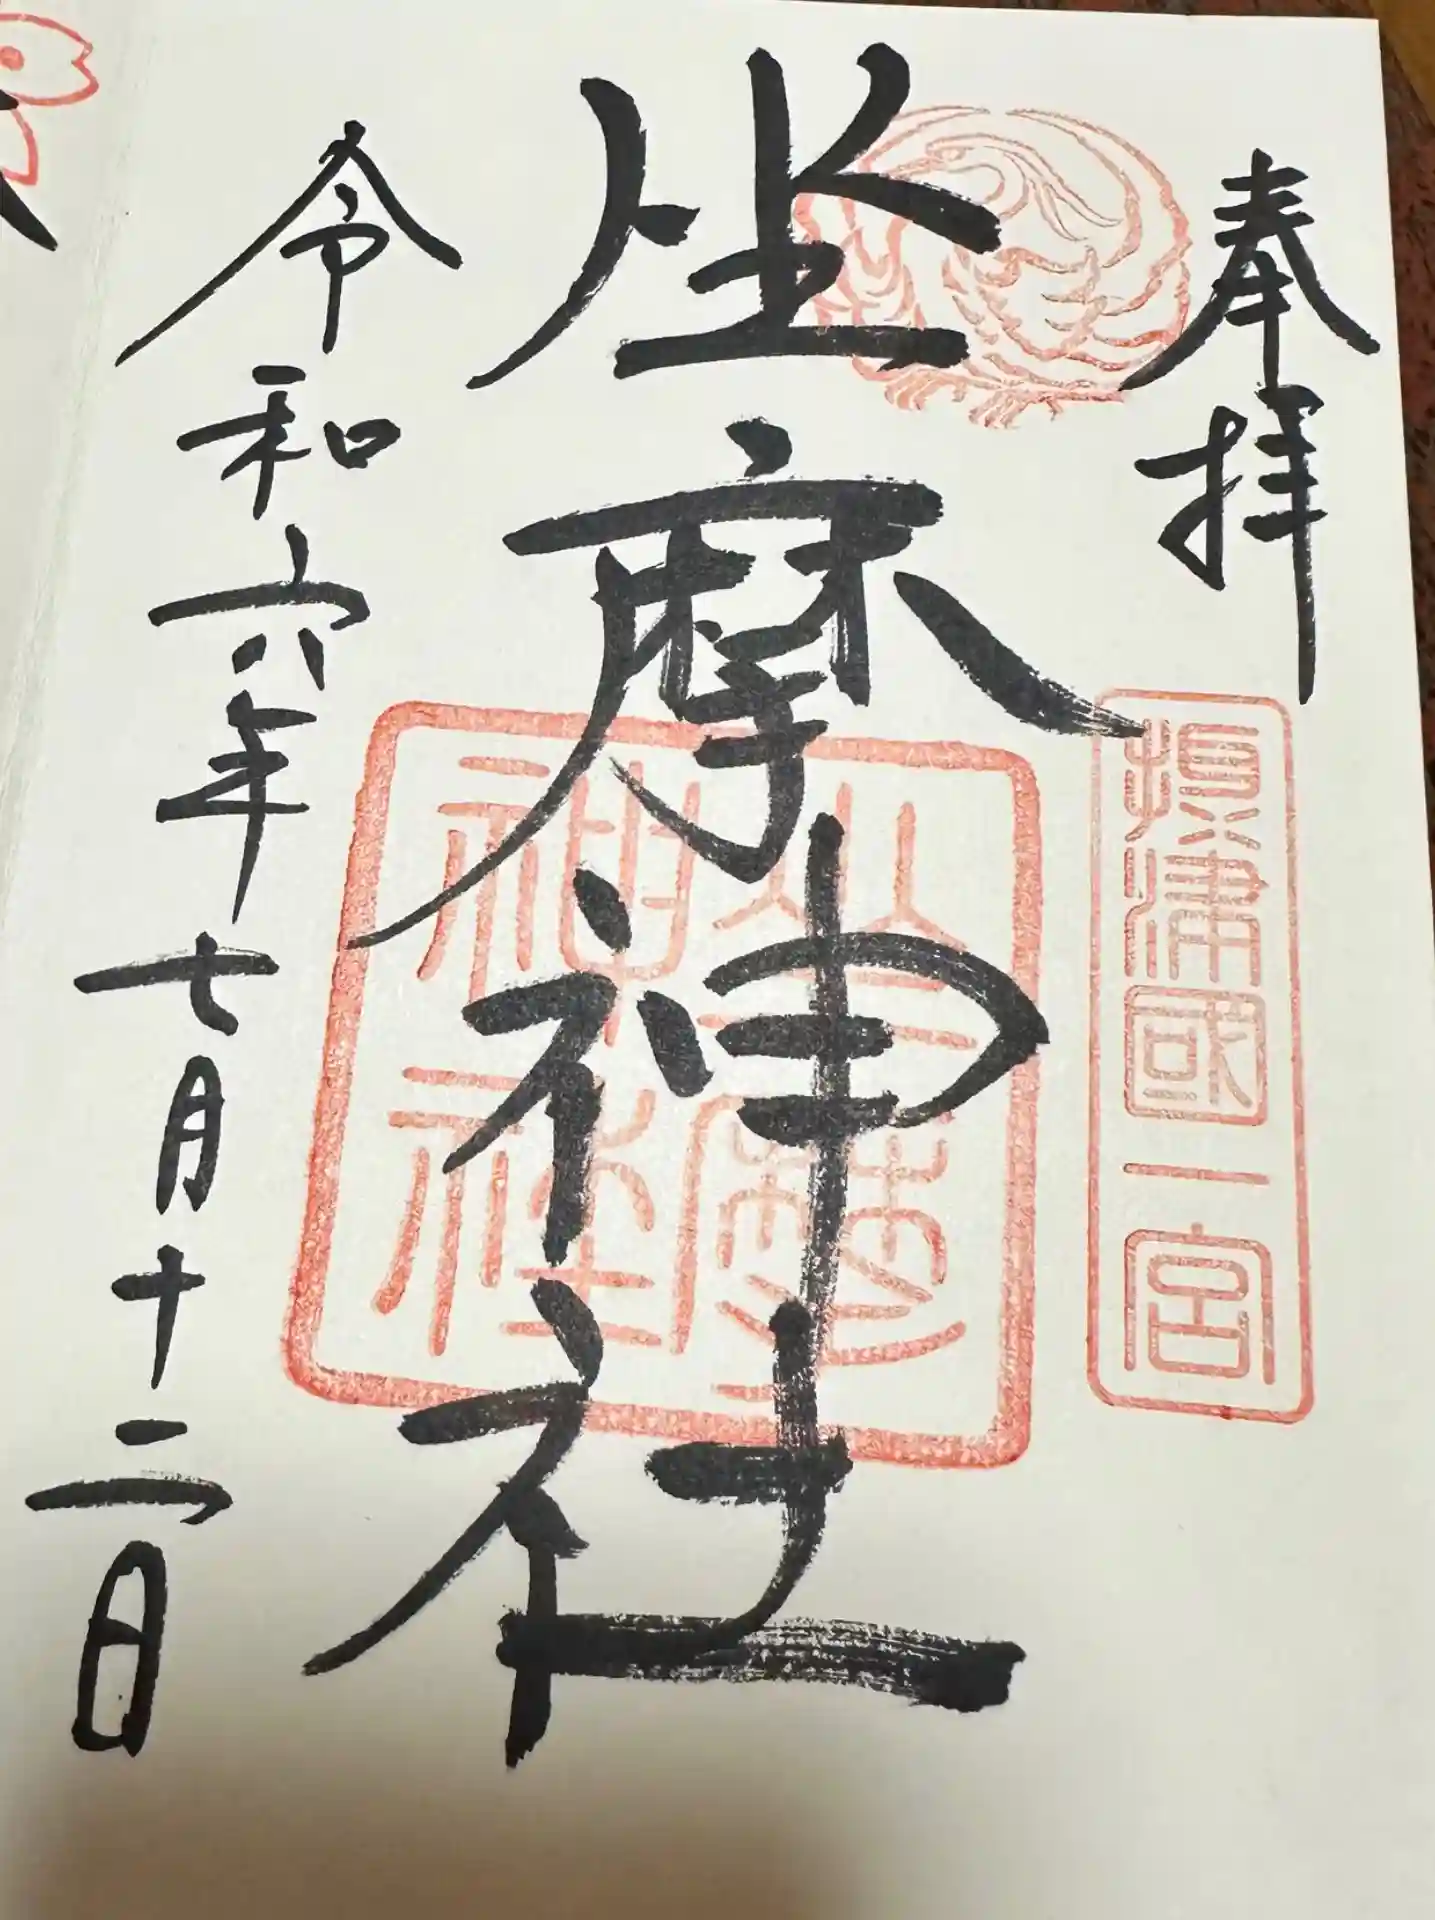 奉拝
摂津國一宮
坐摩神社
坐摩
神社
令和六年七月十二日